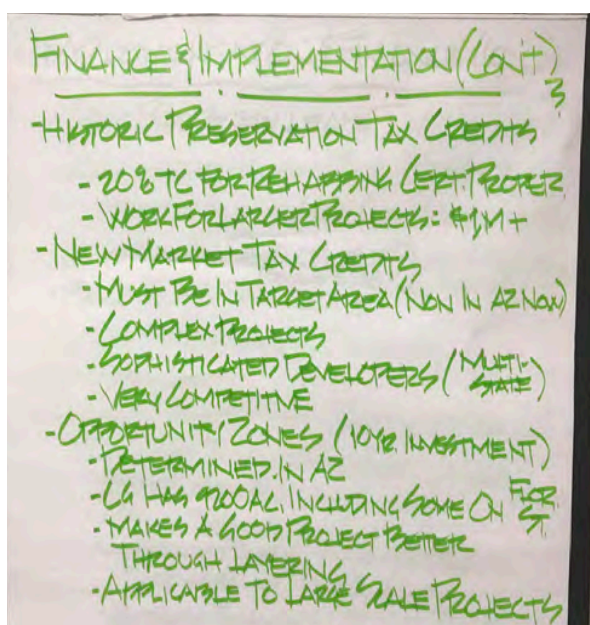 FINANCE & IMPLEMENTATION (CON'T)
3
-HISTORIC PRESERVATION TAX CREDITS
- 20% TC FOR REHABBING CERT. PROPER
- WORK FOR LARGER PROJECTS: $1M+
- NEW MARKET TAX CREDITS
- MUST BE IN TARGET AREA (NON IN AZ NOW)
- COMPLEX PROJECTS
- SOPHISTICATED DEVELOPERS (MULTI-STATE)
- VERY COMPETITIVE
- OPPORTUNITY ZONES (10YR. INVESTMENT)
- DETERMINED IN AZ
- CG HAS 9200 AC, INCLUDING SOME ON FLOR. ST.
- MAKES A GOOD PROJECT BETTER
THROUGH LAYERING
- APPLICABLE TO LARGE SCALE PROJECTS